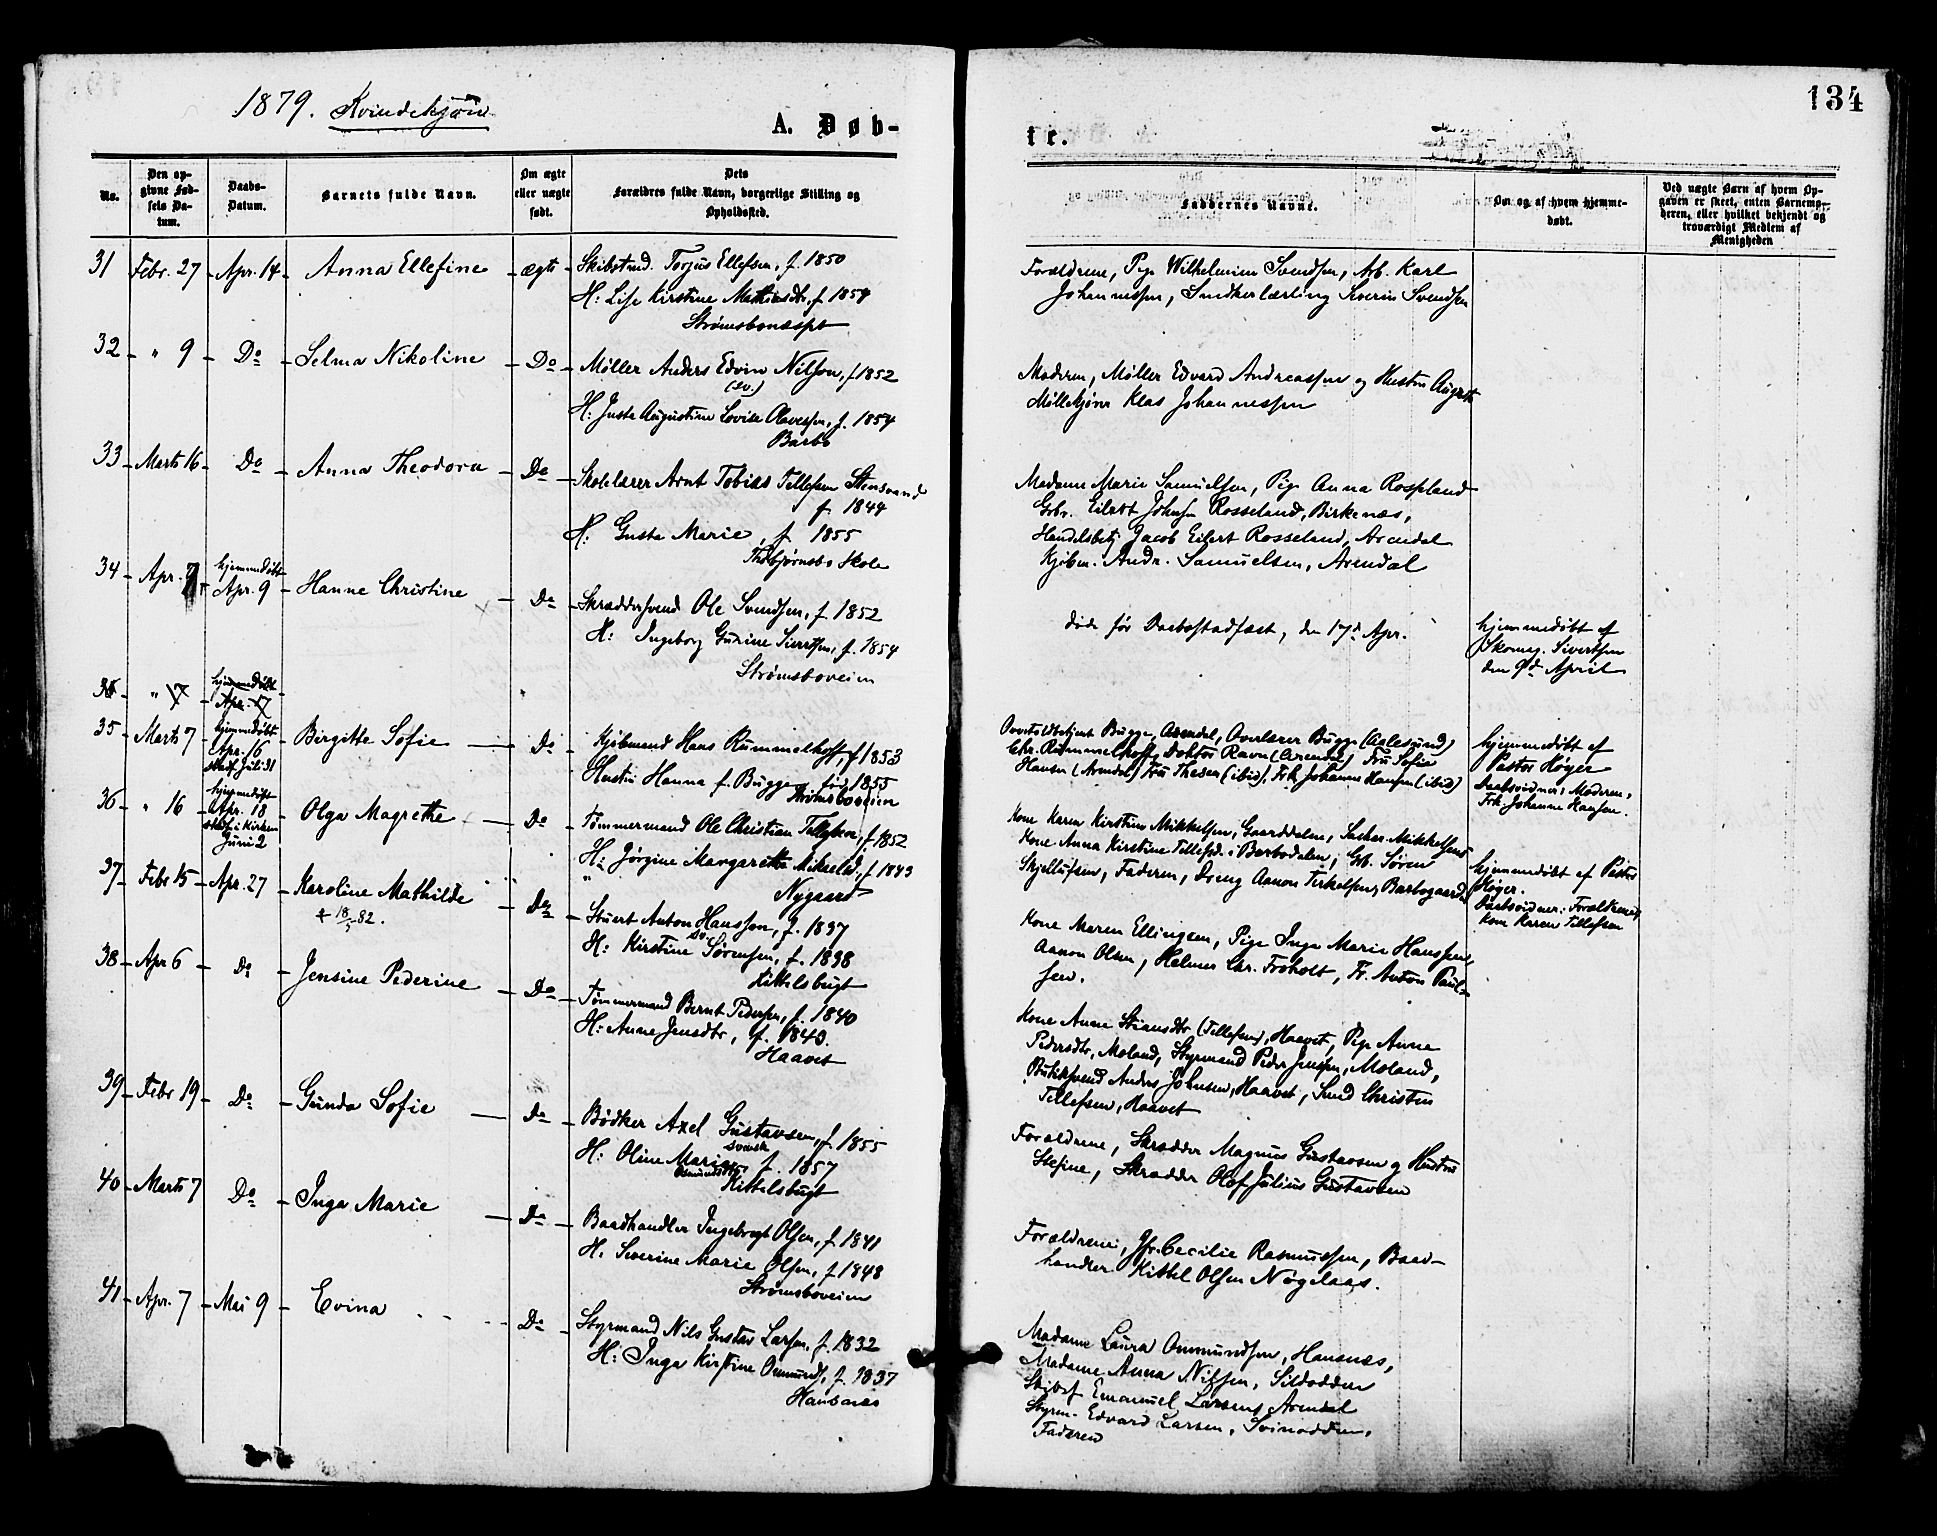 1879. Kvindekjøn
A. Døb-
te.
134
No.
Den op-
givne Fød-
sels Da-
tum.
Daabs-
Datum.
Barnets fulde Navn.
Om ægte
eller uægte
født.
Dets
Forældres fulde Navn, borgerlige Stilling og
Opholdssted.
Faddernes Navne.
Om og af hvem hjemme-
døbt.
Ved uægte Børn af hvem Op-
gaven er skeet, enten Barnemo-
deren, eller hvilket bekjendt og
troværdigt Medlem af
Menigheden
31 Febr. 27 Apr. 14 Anna Ellefine ægte
Torjus Ellefsen, f. 1850
H: Lise Kirstine f. 1854
Forældrene, Pige Wilhelmine Svendsen, Arb. Karl
Johannessen, Snedkerlærling Severin Svendsen
32 " 9 Do Selma Nikoline Do
Møller Anders Edvin Nilson, f. 1852
(sv.)
H: Juste Augustine Lovise Olavesen, f. 1854
Barbo
Moderen, Møller Edvard Andreassen og Hustru Auguste
Klas Johannessen
33 Marts 16 Do Anna Theodora Do
Skolelærer Arnt Tobias Tellefsen Stensvand
f. 1849
H: Gusta Marie, f. 1855
Thorbjørnsbo Skole
Madame Marie Samuelsen, Pige Anna Rosseland
Gbr. Eilert Johnsen Rosseland, Birkenæs,
Handelsbetj. Jacob Eilert Rosseland, Arendal
Kjøbm. Andr. Samuelsen, Arendal
34 Apr. 7
hjemmedøbt
Apr. 9 Hanne Christine Do
Skræddersvend Ole Svendsen, f. 1852
H: Ingeborg Gurine Sivertsen, f. 1854
Strømsboveien
døde før Daabsstadfæst., den 17de Apr.
hjemmedøbt af
Skomag. Sivertsen
den 9de April
" 17
hjemmedøbt
Apr. 17
35 Marts 7
hjemmedøbt
Apr. 16
stadf. Juli 31
Birgitte Sofie Do
Kjøbmand Hans Rummelhoff, f. 1853
Hustru Hanna f. Bugge, født 1855
Strømsboveien
Overtoldbetjent Bugge, Arendal, Overlærer Bugge (Aalesund)
Chr. Rummelhoff, Doktor Ravn (Arendal) Fru Sofie
Hansen (Arendal) Fru (ibid), Frk. Johanne Hansen (ibid)
hjemmedøbt af
Pastor Høyer
Daabsvidner: Moderen,
Frk. Johanne Hansen.
36 " 16
hjemmedøbt
Apr. 18
stadf. i Kirken
Juni 2
Olga Magrethe Do
Tømmermand Ole Christian Tellefsen, f. 1852
H: Jørgine Margarethe Mikaelsd., f. 1843
Nygaard
Kone Karen Kirstine Mikkelsen, Gaarddalen, Mikkelsens
Kone Anna Kirstine Tellefsd. i Barbodalen, Gb. Søren
Faderen, Dreng Aanon Terkelsen, Barbogaard
hjemmedøbt af Pastor
Høyer.
Daabsvidner: Forældrene,
Kone Karen Tellefsen
37 Febr 15 Apr. 27 Karoline Mathilde
Do
Stuert Anton Hanssen, f. 1837
H: Kirstine Sørensen, f. 1838
Kittelsbugt
Kone Maren Ellingsen, Pige Inga Marie Hanssen,
Aanon Olsen, Helmer Chr. Froholt, Fr. Anton Paul-
sen.
38 Apr 6 Do Jensine Pederine Do
Tømmermand Bernt Pedersen, f. 1840
H: Anne Jensdtr, f. 1843.
Haavet
Kone Anne Stiansdtr (Tellefsen), Haavet, Pige Anne
Pedersdtr, Moland, Styrmand Peder Jensen, Moland,
Butiksvend Anders Johnsen, Haavet, Christen
Tellefsen, Haavet
39 Febr 19 Do Gunda Sofie Do
Bødker Axel Gustavsen, f. 1855
svensk
H: Oline Marie, f. 1857
Kittelsbugt
Forældrene, Skrædder Magnus Gustavsen og Hustru
Stefine, Skrædder Olof Julius Gustavsen
40 Marts 7 Do Inga Marie Do
Baadhandler Ingebregt Olsen, f. 1841
H: Severine Marie Olsen, f. 1848
Strømsboveien
Forældrene, Jfr. Cecilie Rasmussen, Baad-
handler Kittel Olsen Nøgelaas.
41 Apr. 7 Mai 9 Evina Do
Styrmand Nils Gustav Larsen, f. 1832
H: Inga Kirstine Ommunds., f. 1837
Hansnæs
Madame Laura Ommundsen, Hansnæs,
Madame Anna Nilsen, Sildodden
Skibsf. Emanuel Larsen, Arendal
Styrm. Edvard Larsen, Svinodden,
Faderen